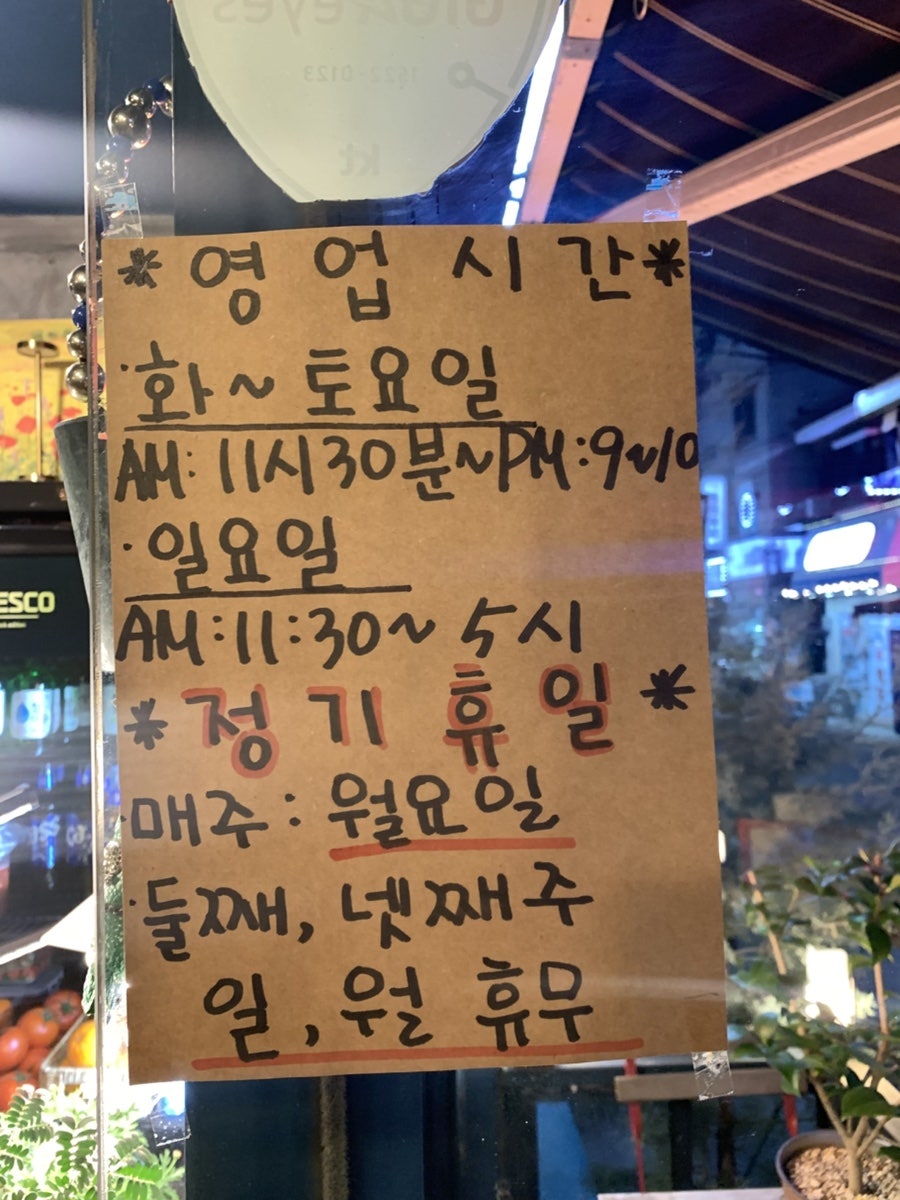 1522-0123
kt
*영업시간*
·화~토요일
AM:11시30분~PM:9~10
·일요일
AM:11:30~5시
*정기휴일*
·매주:월요일
·둘째, 넷째주
일,월 휴무
ESCO